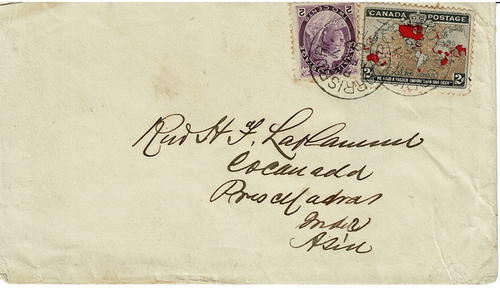 CANADA POSTAGE
2 2
WE HOLD A VASTER EMPIRE THAN HAS BEEN
2 2
Revd H. F. Laflamme
Cocanada
Pres Madras
India
Asia